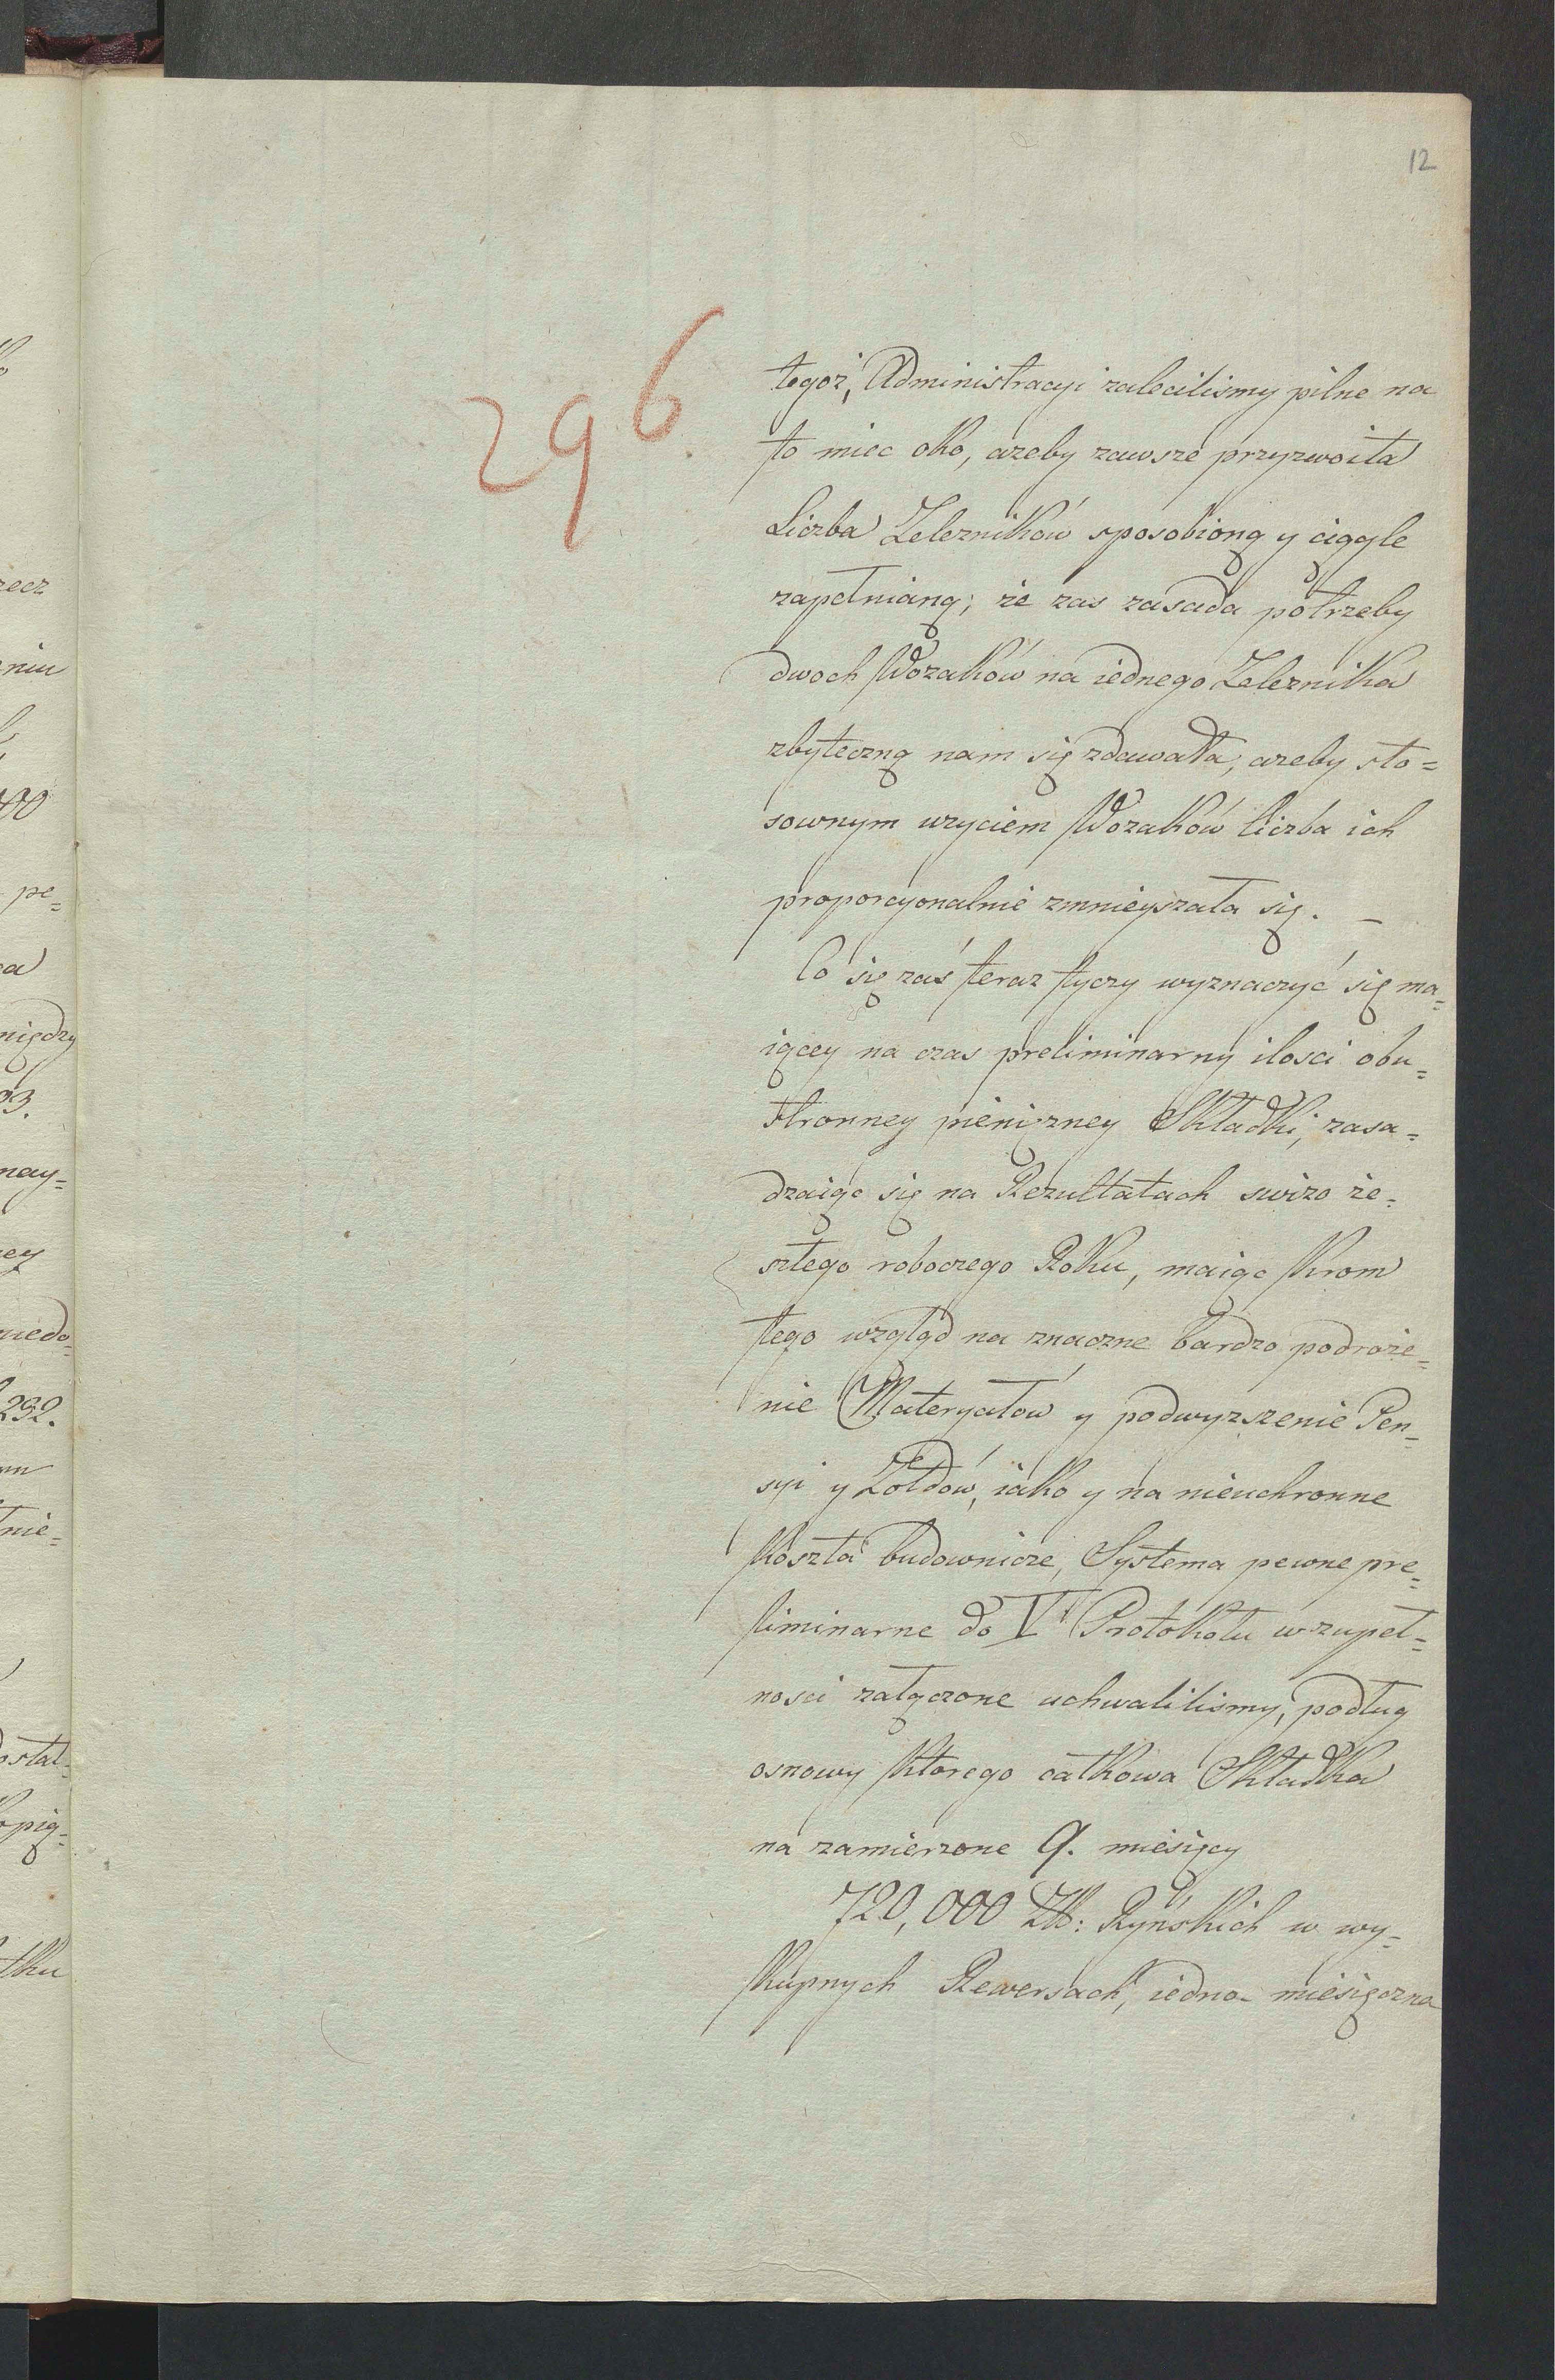 12
296
tegoż, Administracyi zaleciliśmy pilne na
to miec oko, azeby zawsze przyzwoita
Liczba Zelezników sposobioną y ciągle
zapełnianą; że zas zasada potrzeby
dwoch Wozaków na iednego Zeleznika
zbyteczną nam się zdawała, azeby sto=
sownym uzyciem Wozaków liczba ich
proporcyonalnie zmnieyszała się. –
Co się zaś teraz tyczy wyznaczyć się ma=
iącey na czas preliminarny ilosci obu=
stronney pieniężney Składki, zasa=
dzaiąc się na Rezultatach swizo ze=
szłego roboczego Roku, maiąc krom
tego wzgląd na znaczne bardzo podroże=
nie Materyałów y podwyzszenie Pen=
syi y Żołdów, iako y na nieuchronne
koszta budownicze, Systema pewne pre=
liminarne do V Protokołu w zupeł=
nosci załączone uchwaliliśmy, podług
osnowy ktorego całkowa Składka
na zamierzone 9. miesięcy
720,000 ZŁ: Ryńskich w wy=
kupnych Rewersach, iedno- miesięczna
rzecz
niu
000
pe=
między
93.
nay=
232.
nie=